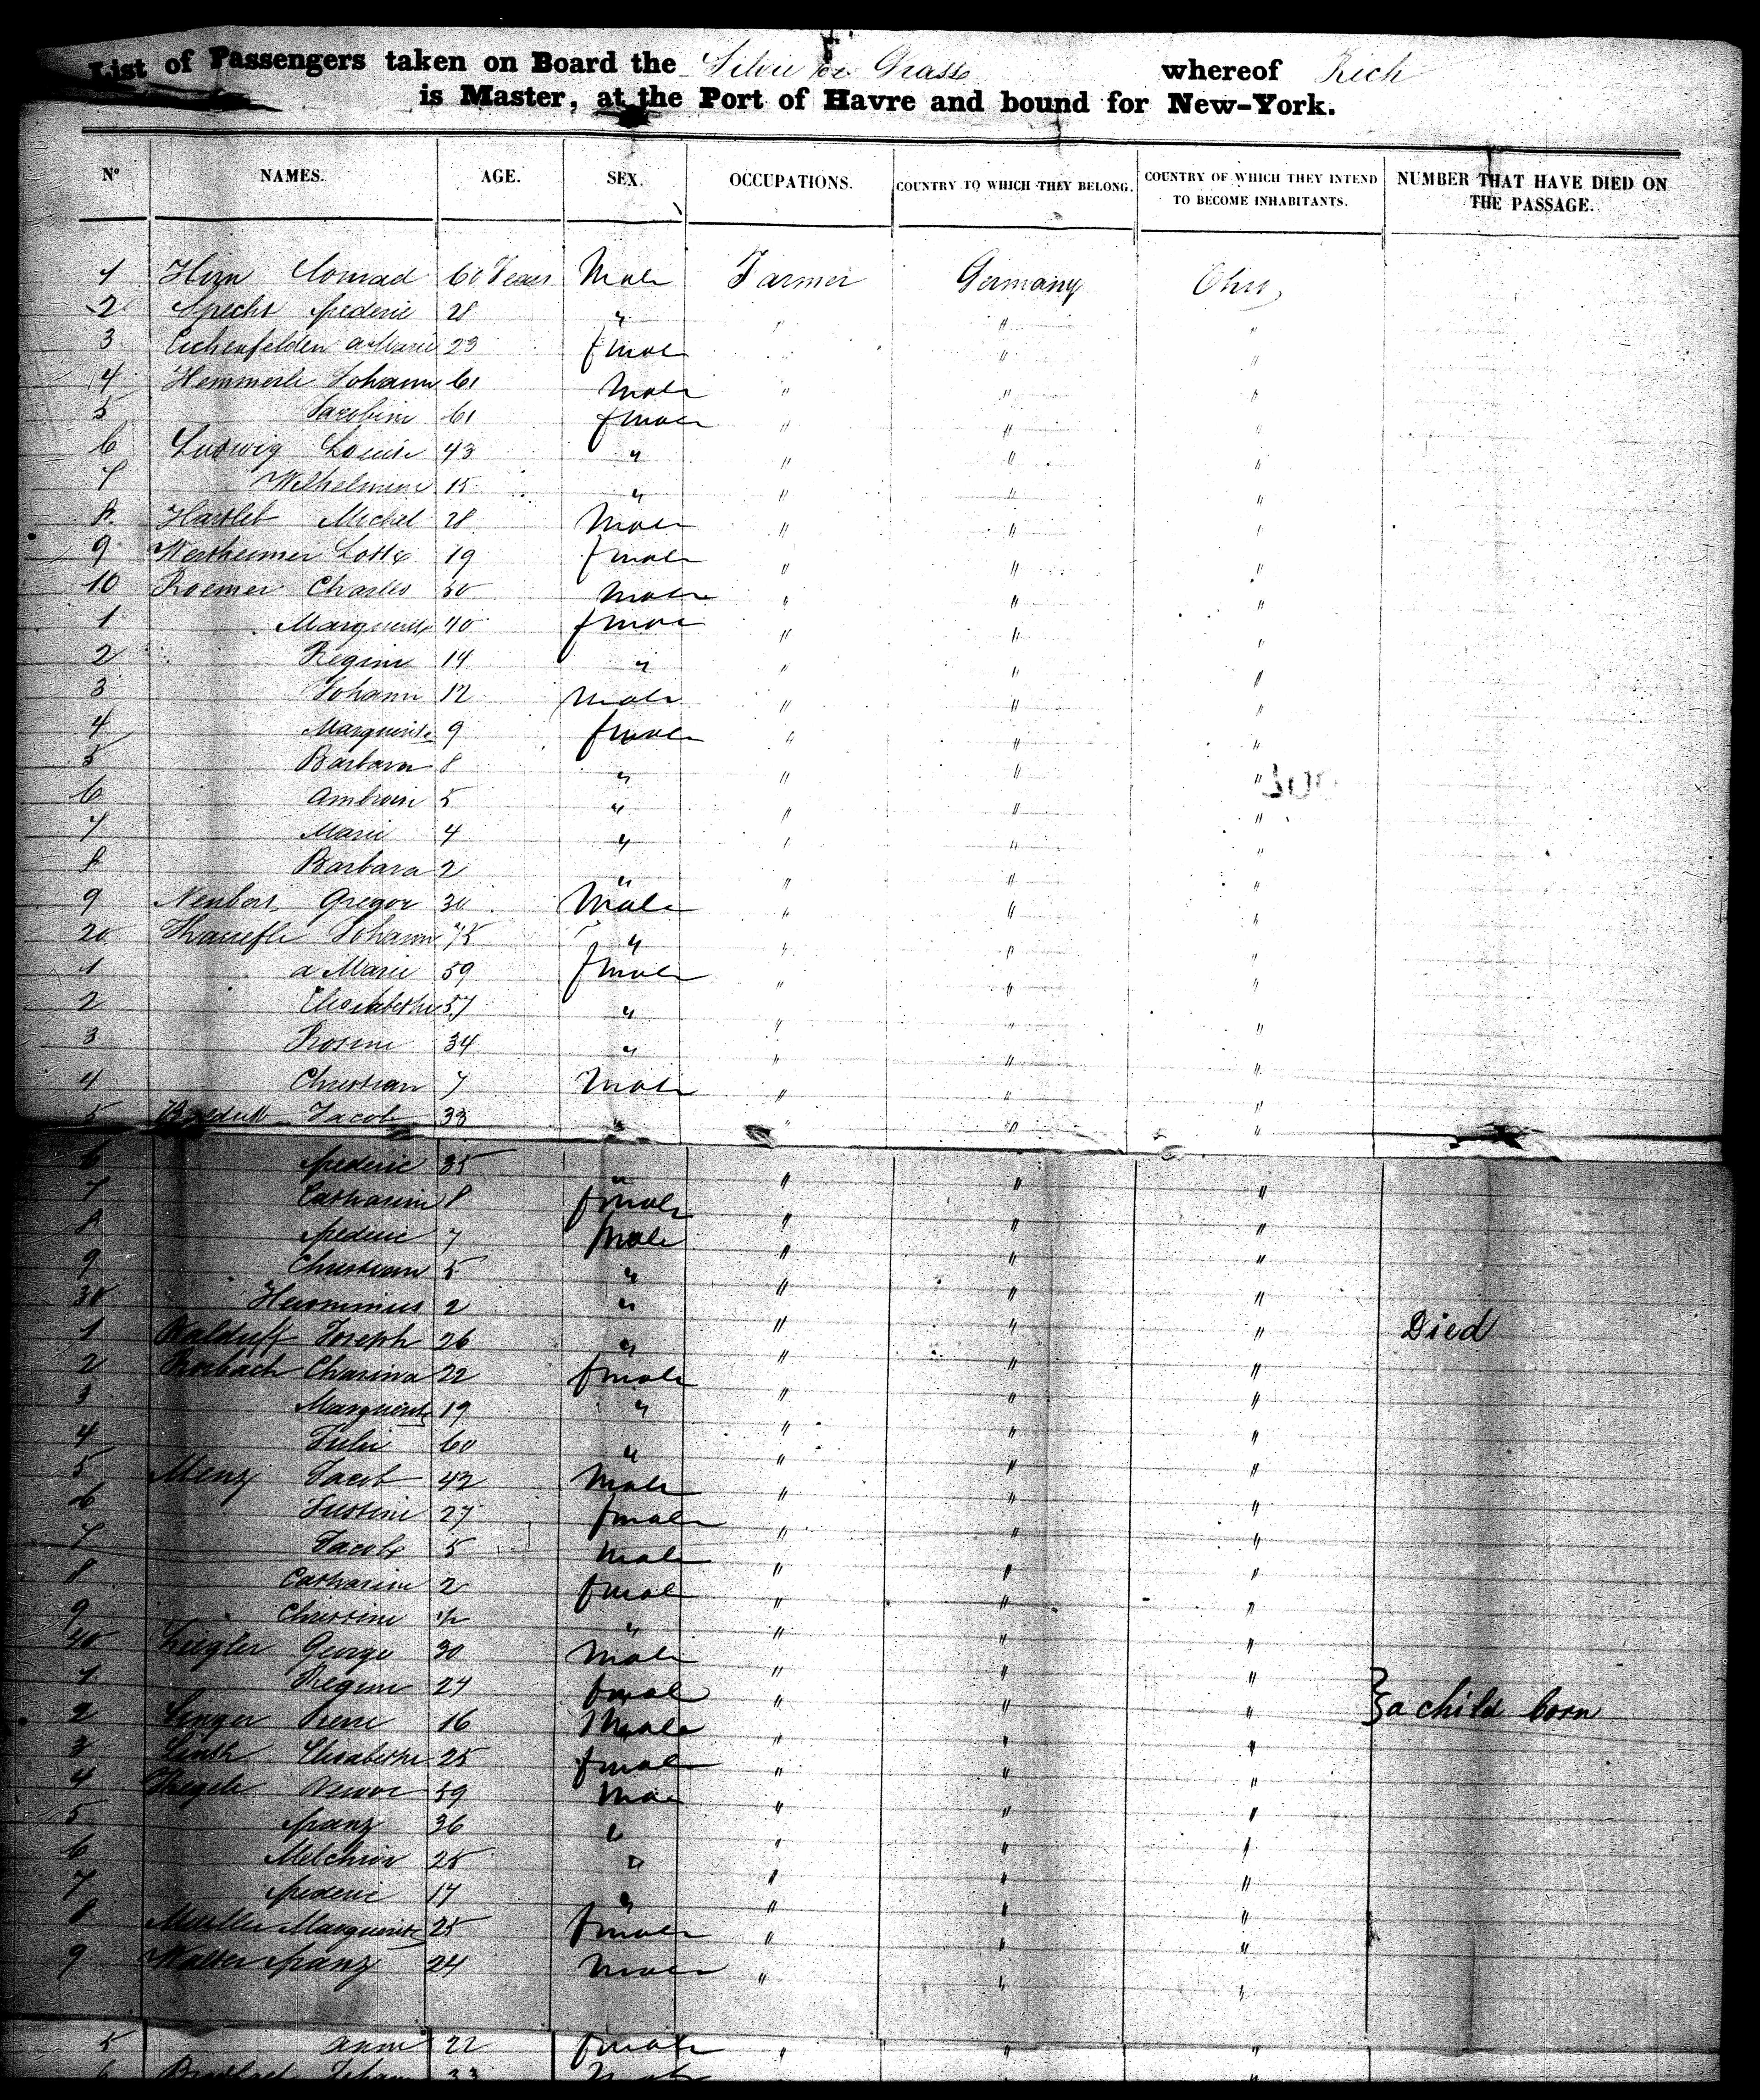 List of Passengers taken on Board the Silvie de Grasse whereof Rich
is Master, at the Port of Havre and bound for New-York.
Nº NAMES. AGE. SEX. OCCUPATIONS. COUNTRY TO WHICH THEY BELONG. COUNTRY OF WHICH THEY INTEND TO BECOME INHABITANTS. NUMBER THAT HAVE DIED ON THE PASSAGE.
1 Horn Conrad 60 Years Male Farmer Germany Ohio
2 Specht frederic 28 " " " "
3 Eichenfelden a Marie 23 fmale " " "
4 Hemmerle Johann 61 Male " " "
5 Jacobine 61 fmale " " "
6 Ludwig Louise 43 " " " "
7 Wilhelmine 15 " " " "
8 Hartleb Michel 28 Male " " "
9 Wertheimer Lotte 19 fmale " " "
10 Roemer Charles 50 Male " " "
1 Marguerite 40 fmale " " "
2 Regine 14 " " " "
3 Johann 12 Male " " "
4 Marguerite 9 fmale " " "
5 Barbara 8 " " " "
6 5 " " " "
7 Marie 4 " " " "
8 Barbara 2 " " " "
9 Gregor 30 Male " " "
20 Johann 75 " " " "
1 a Marie 59 fmale " " "
2 Elisabethe 57 " " " "
3 Rosine 34 " " " "
4 Christian 7 Male " " "
5 Jacob 33 " " " "
6 frederic 35 " " " "
7 Catharine 8 fmale " " "
8 frederic 7 Male " " "
9 Christian 5 " " " "
30 Hieronimus 2 " " " " Died
1 Walduff Joseph 26 " " " "
2 Rorbach 22 fmale " " "
3 Marguerite 19 " " " "
4 Julie 60 " " " "
5 Menz Jacob 42 Male " " "
6 Justine 27 fmale " " "
7 Jacob 5 Male " " "
8 Catharine 2 fmale " " "
9 Christine 1/2 " " " "
40 Ziegler George 30 Male " " "
1 Regine 24 fmale " " " } a child born
2 Singer Pierre 16 Male " " "
3 Elisabethe 25 fmale " " "
4 59 Male " " "
5 franz 36 " " " "
6 Melchior 25 " " " "
7 frederic 17 " " " "
8 Mueller Marguerite 25 fmale " " "
9 Walter franz 24 Male " " "
5 anne 22 fmale " " "
6 Johann 33 Male